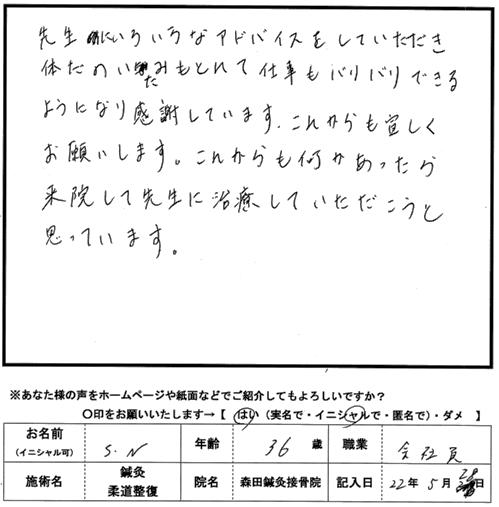 先生にいろいろなアドバイスをしていただき
体だのいたみもとれて仕事もバリバリできる
ようになり感謝しています。これからも宜しく
お願いします。これからも何かあったら
来院して先生に治療していただこうと
思っています。
※あなた様の声をホームページや紙面などでご紹介してもよろしいですか?
〇印をお願いいたします→【 はい (実名で・イニシャルで・匿名で)・ダメ 】
お名前 (イニシャル可) S.N 年齢 36 歳 職業 会社員
施術名 鍼灸 柔道整復 院名 森田鍼灸接骨院 記入日 22年 5月 日